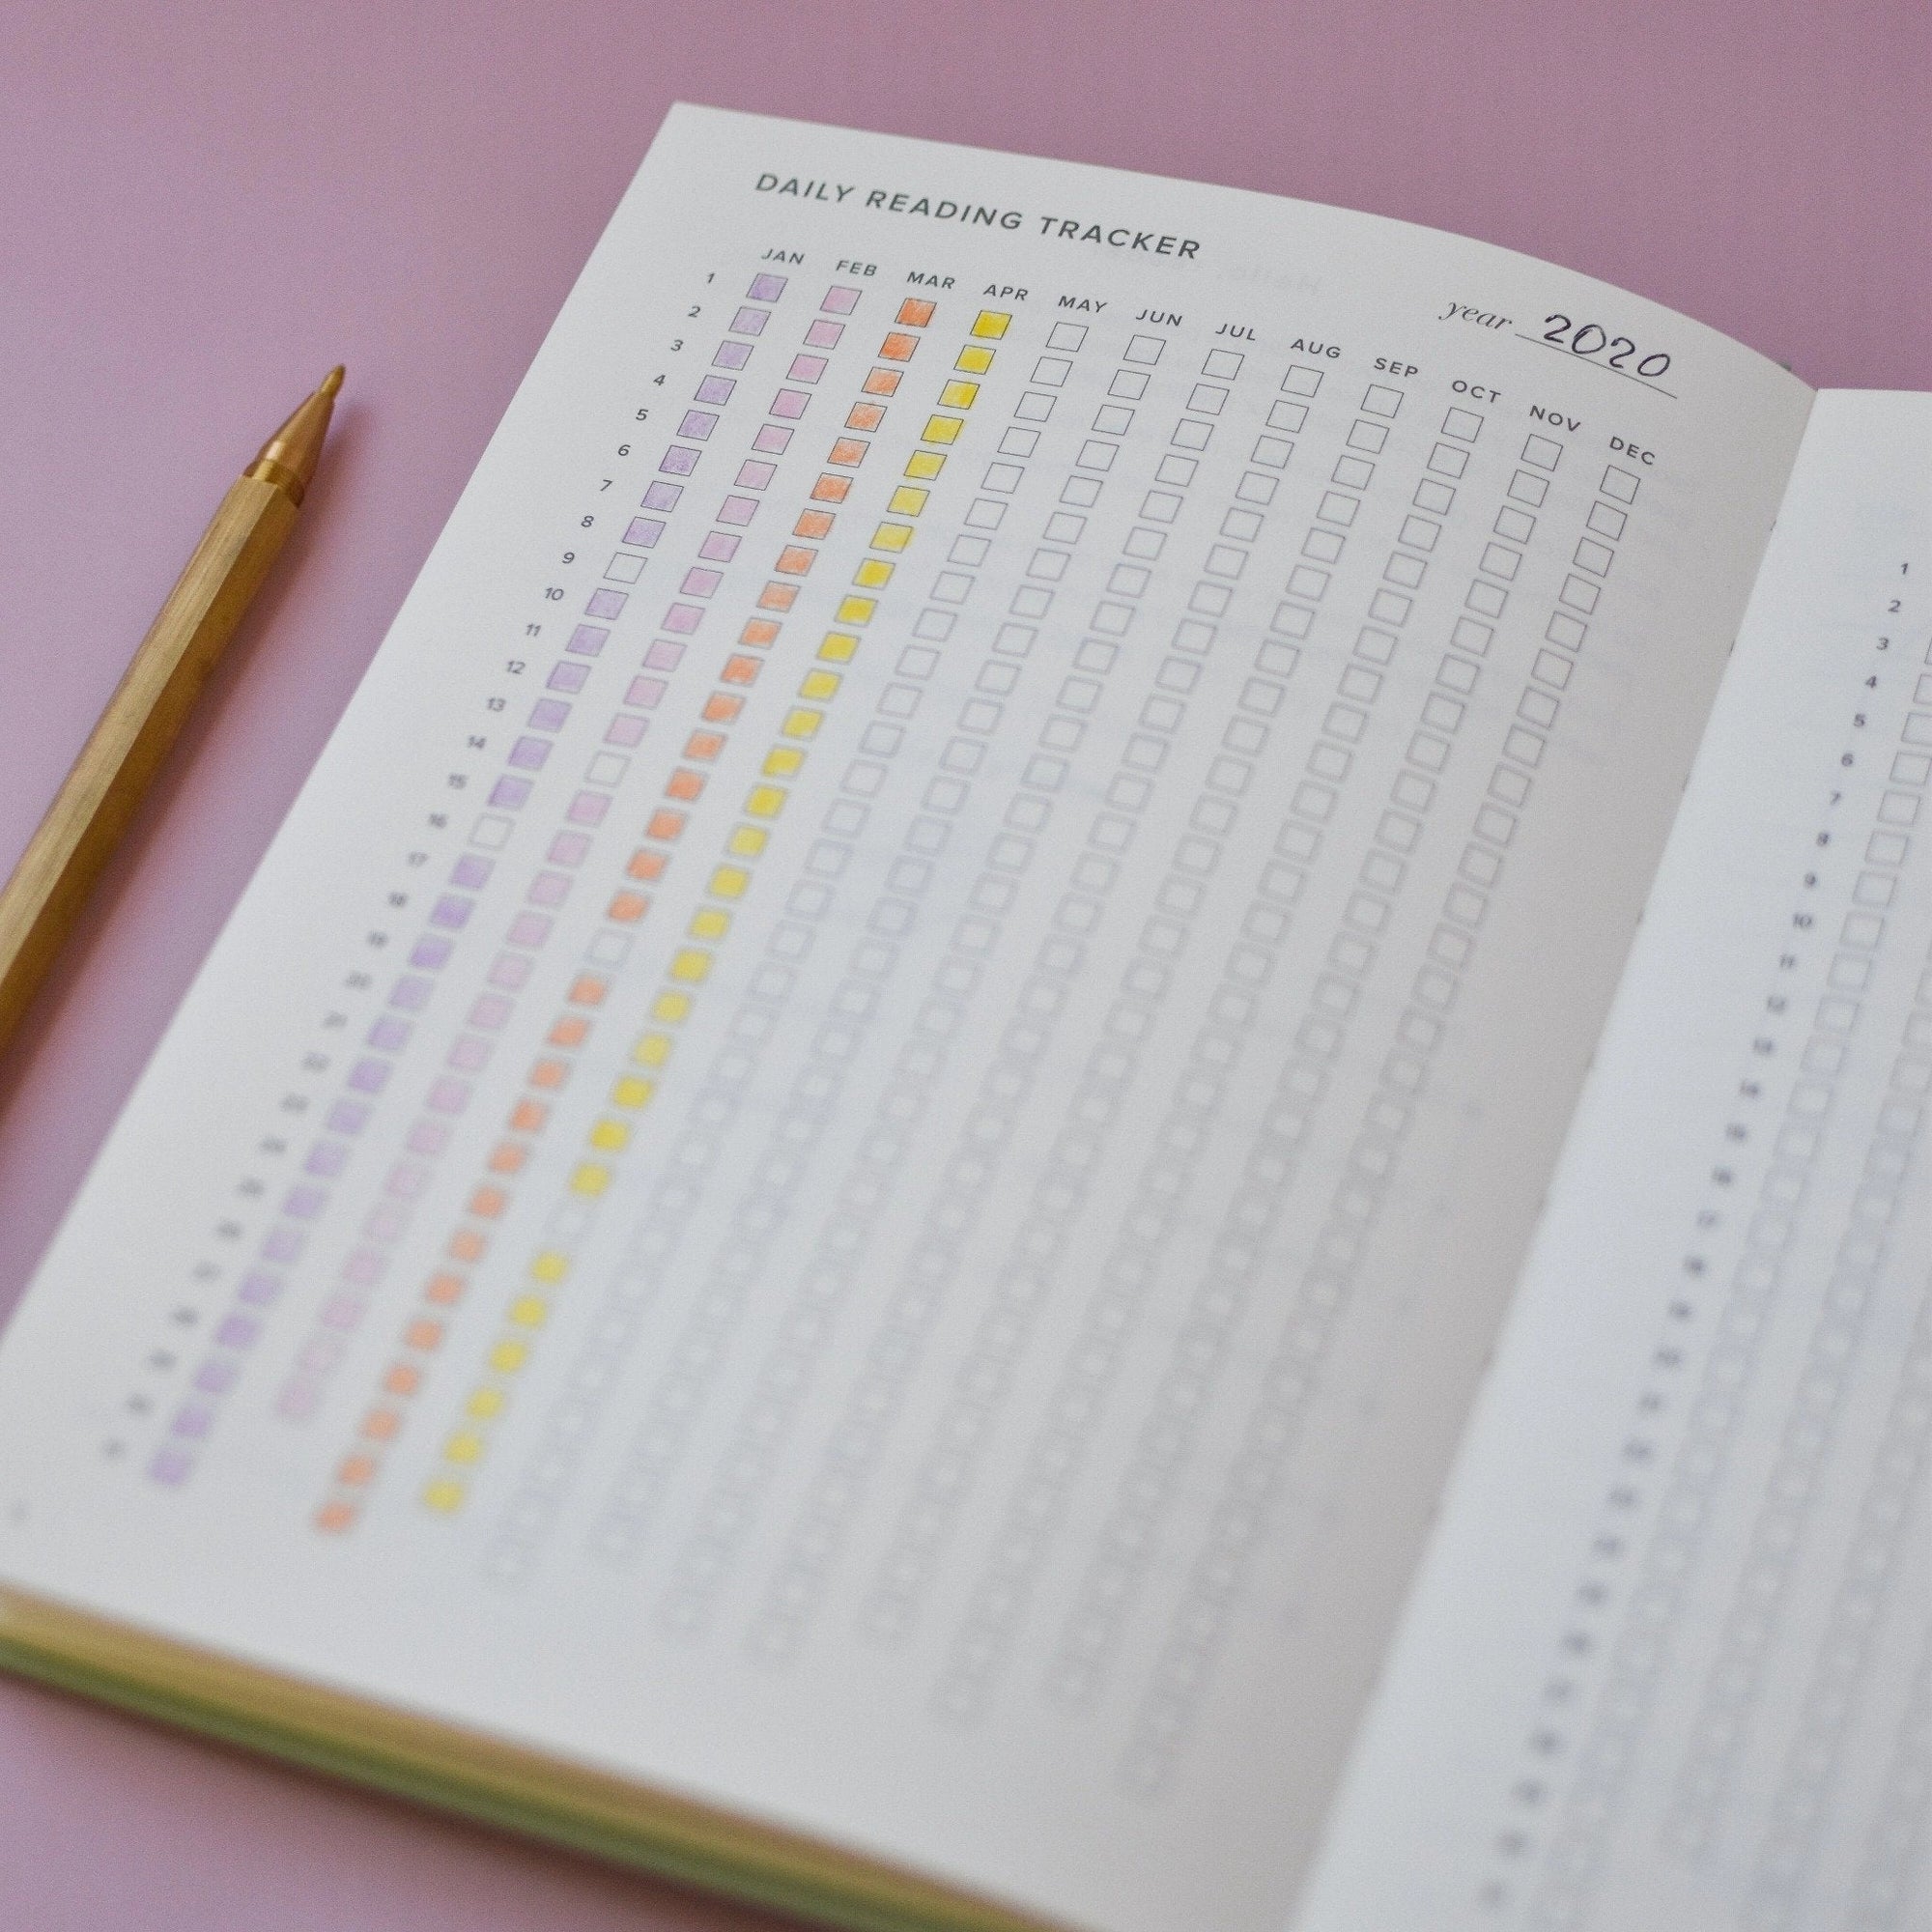 DAILY READING TRACKER
year 2020
JAN FEB MAR APR MAY JUN JUL AUG SEP OCT NOV DEC
1
2
3
4
5
6
7
8
9
10
11
12
13
14
15
16
17
18
19
20
21
22
1
2
3
4
5
6
7
8
9
10
11
12
13
14
15
16
17